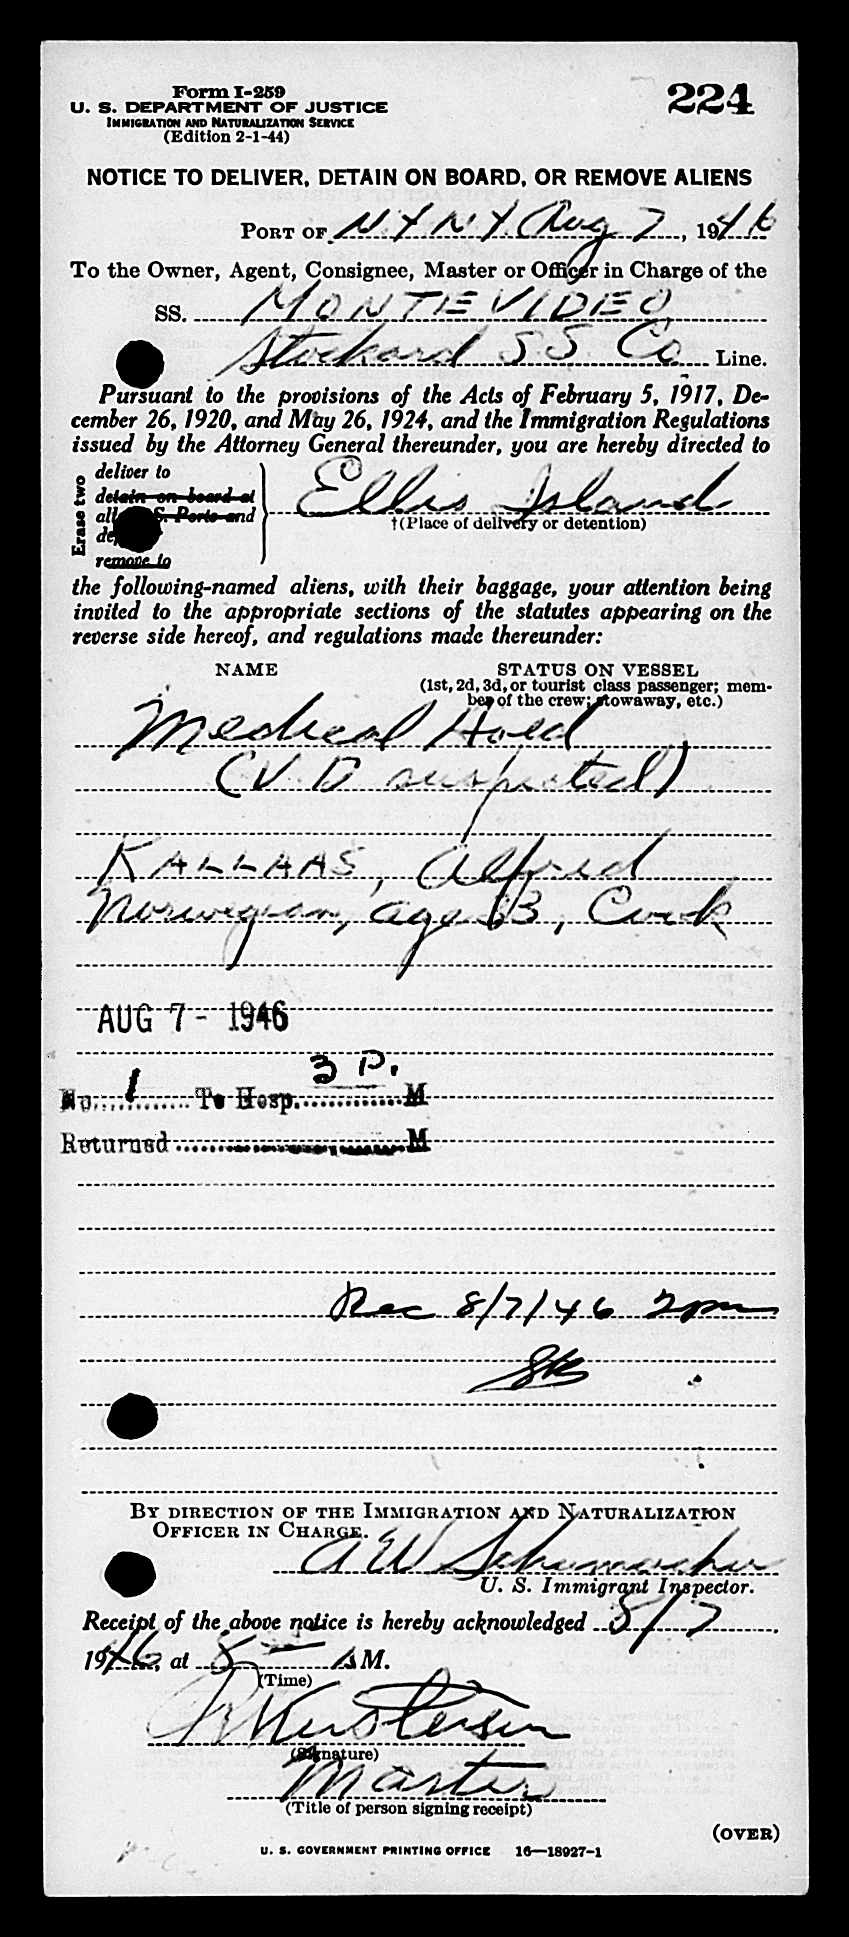 Form I-259
U. S. DEPARTMENT OF JUSTICE
IMMIGRATION AND NATURALIZATION SERVICE
(Edition 2-1-44)
224
NOTICE TO DELIVER, DETAIN ON BOARD, OR REMOVE ALIENS
PORT OF N Y N Y Aug 7, 1946
To the Owner, Agent, Consignee, Master or Officer in Charge of the
SS. MONTEVIDEO
Stockard SS Co Line.
Pursuant to the provisions of the Acts of February 5, 1917, De-
cember 26, 1920, and May 26, 1924, and the Immigration Regulations
issued by the Attorney General thereunder, you are hereby directed to
Erase two
deliver to
detain on board at
all S. Ports and
remove to
Ellis Island
†(Place of delivery or detention)
the following-named aliens, with their baggage, your attention being
invited to the appropriate sections of the statutes appearing on the
reverse side hereof, and regulations made thereunder:
NAME STATUS ON VESSEL
(1st, 2d, 3d, or tourist class passenger; mem-
ber of the crew; stowaway, etc.)
Medical Hold
(V.D suspected)
KALLAAS, Alfred
Norwegian, age Cook
AUG 7 - 1946
No. 1 To Hosp. 3 P. M
Returned M
Rec 8/7/46 2pm
BY DIRECTION OF THE IMMIGRATION AND NATURALIZATION
OFFICER IN CHARGE.
A W Schumacher
U. S. Immigrant Inspector.
Receipt of the above notice is hereby acknowledged 8/7
1946, at 8 AM.
(Time)
(Signature)
Master
(Title of person signing receipt)
(OVER)
U. S. GOVERNMENT PRINTING OFFICE 16—18927-1